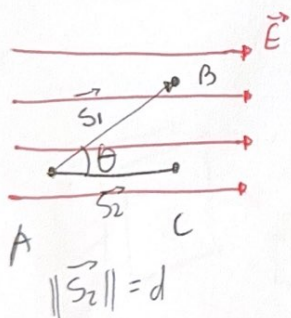 E⃗
B
S⃗1
θ
S⃗2
A
C
‖S⃗2‖ = d